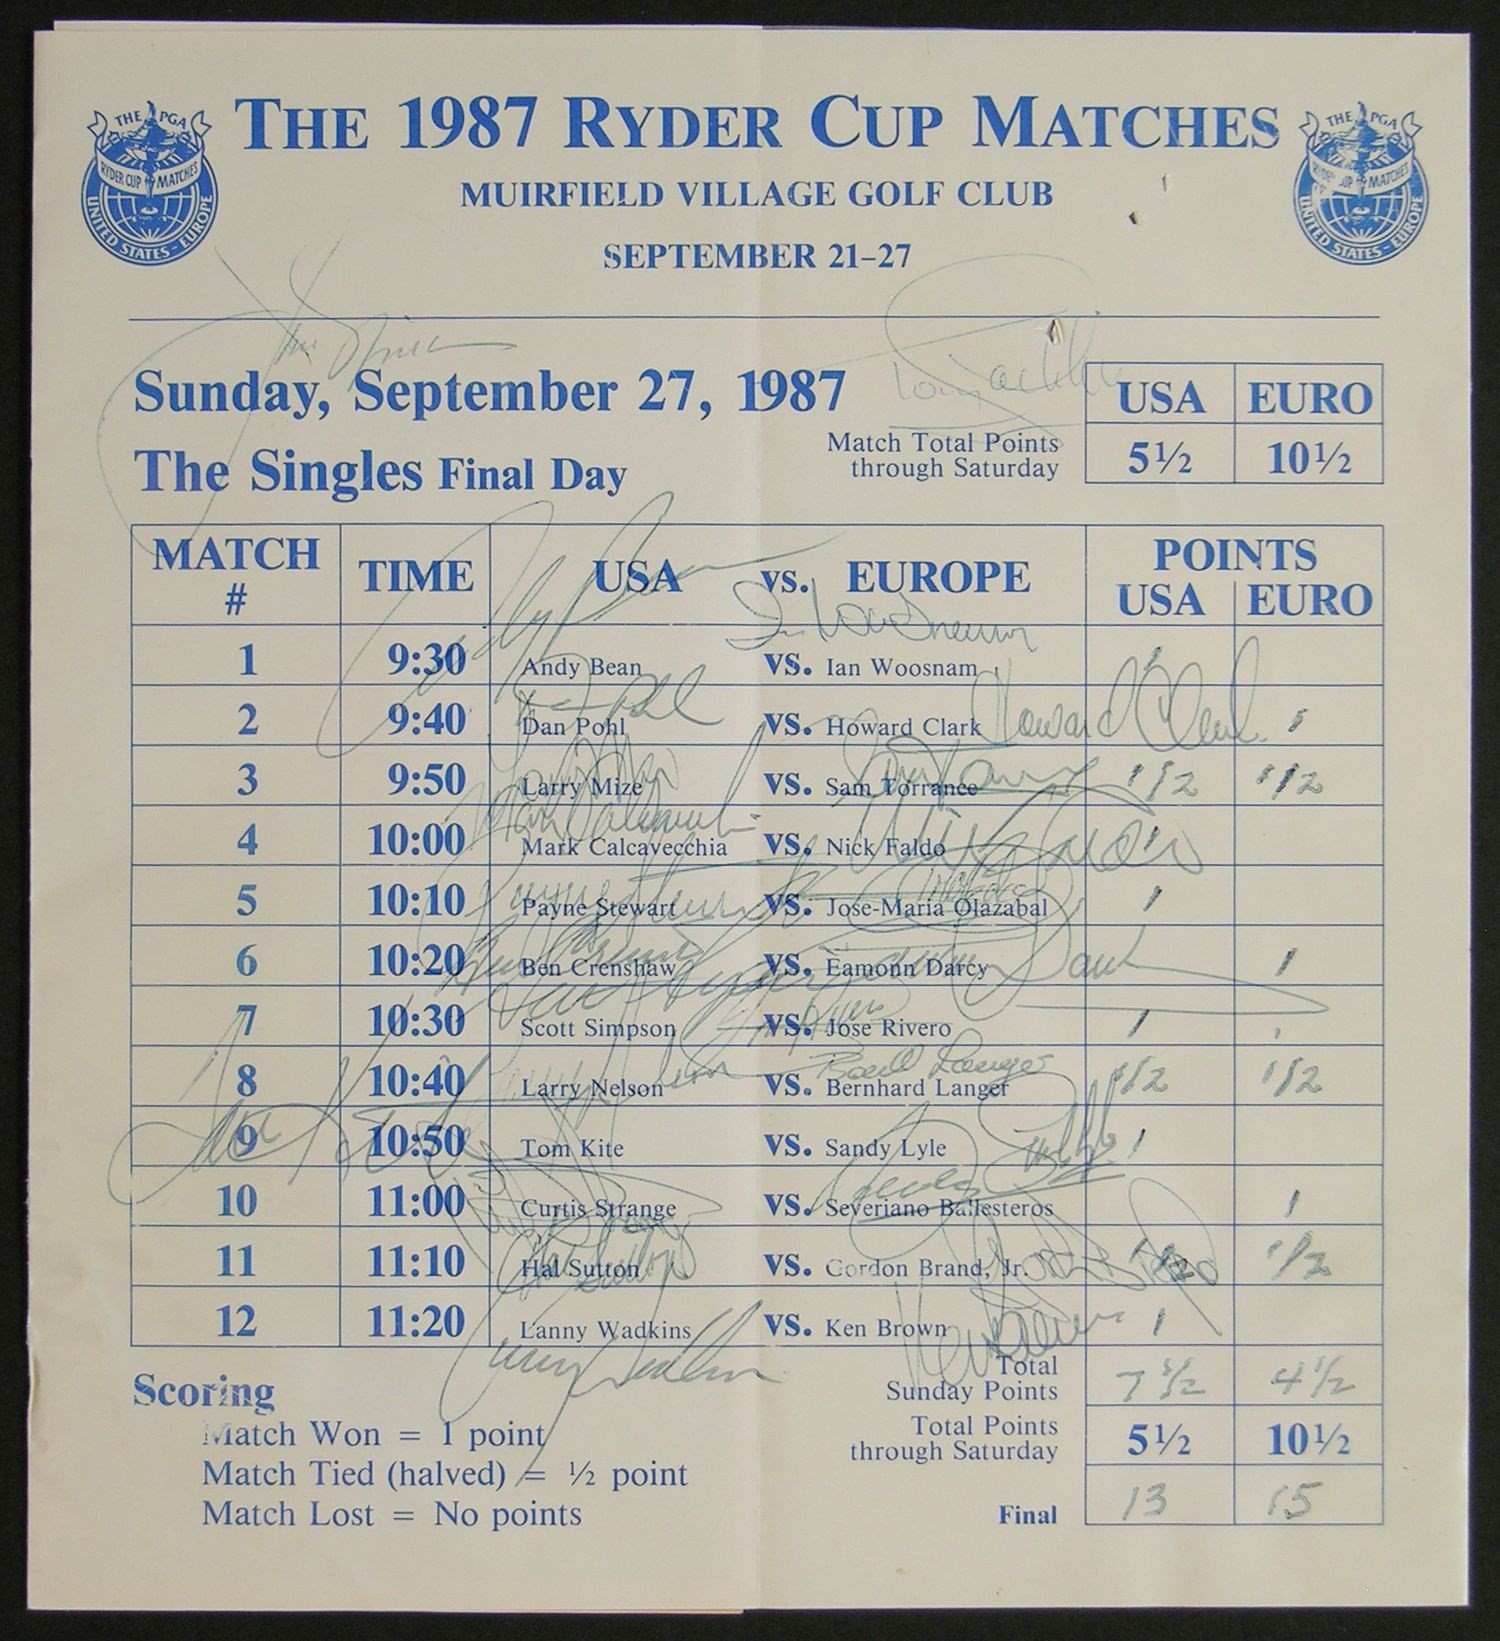 THE PGA
RYDER CUP MATCHES
UNITED STATES - EUROPE
THE 1987 RYDER CUP MATCHES
MUIRFIELD VILLAGE GOLF CLUB
SEPTEMBER 21-27
THE PGA
RYDER CUP MATCHES
UNITED STATES - EUROPE
Sunday, September 27, 1987
The Singles Final Day
Match Total Points through Saturday
USA EURO
5½ 10½
MATCH # TIME USA vs. EUROPE POINTS USA EURO
1 9:30 Andy Bean vs. Ian Woosnam 1
Ian Woosnam
2 9:40 Dan Pohl vs. Howard Clark 1
Howard Clark
3 9:50 Larry Mize vs. Sam Torrance 1/2 1/2
4 10:00 Mark Calcavecchia vs. Nick Faldo 1
5 10:10 Payne Stewart vs. Jose-Maria Olazabal 1
6 10:20 Ben Crenshaw vs. Eamonn Darcy 1
7 10:30 Scott Simpson vs. Jose Rivero 1
8 10:40 Larry Nelson vs. Bernhard Langer 1/2 1/2
9 10:50 Tom Kite vs. Sandy Lyle 1
10 11:00 Curtis Strange vs. Severiano Ballesteros 1
11 11:10 Hal Sutton vs. Gordon Brand, Jr. 1/2 1/2
12 11:20 Lanny Wadkins vs. Ken Brown 1
Total Sunday Points 7 1/2 4 1/2
Total Points through Saturday 5½ 10½
Final 13 15
Scoring
Match Won = 1 point
Match Tied (halved) = ½ point
Match Lost = No points